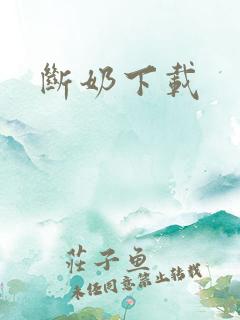 斷奶下載
莊子魚
未任同意禁止轉載